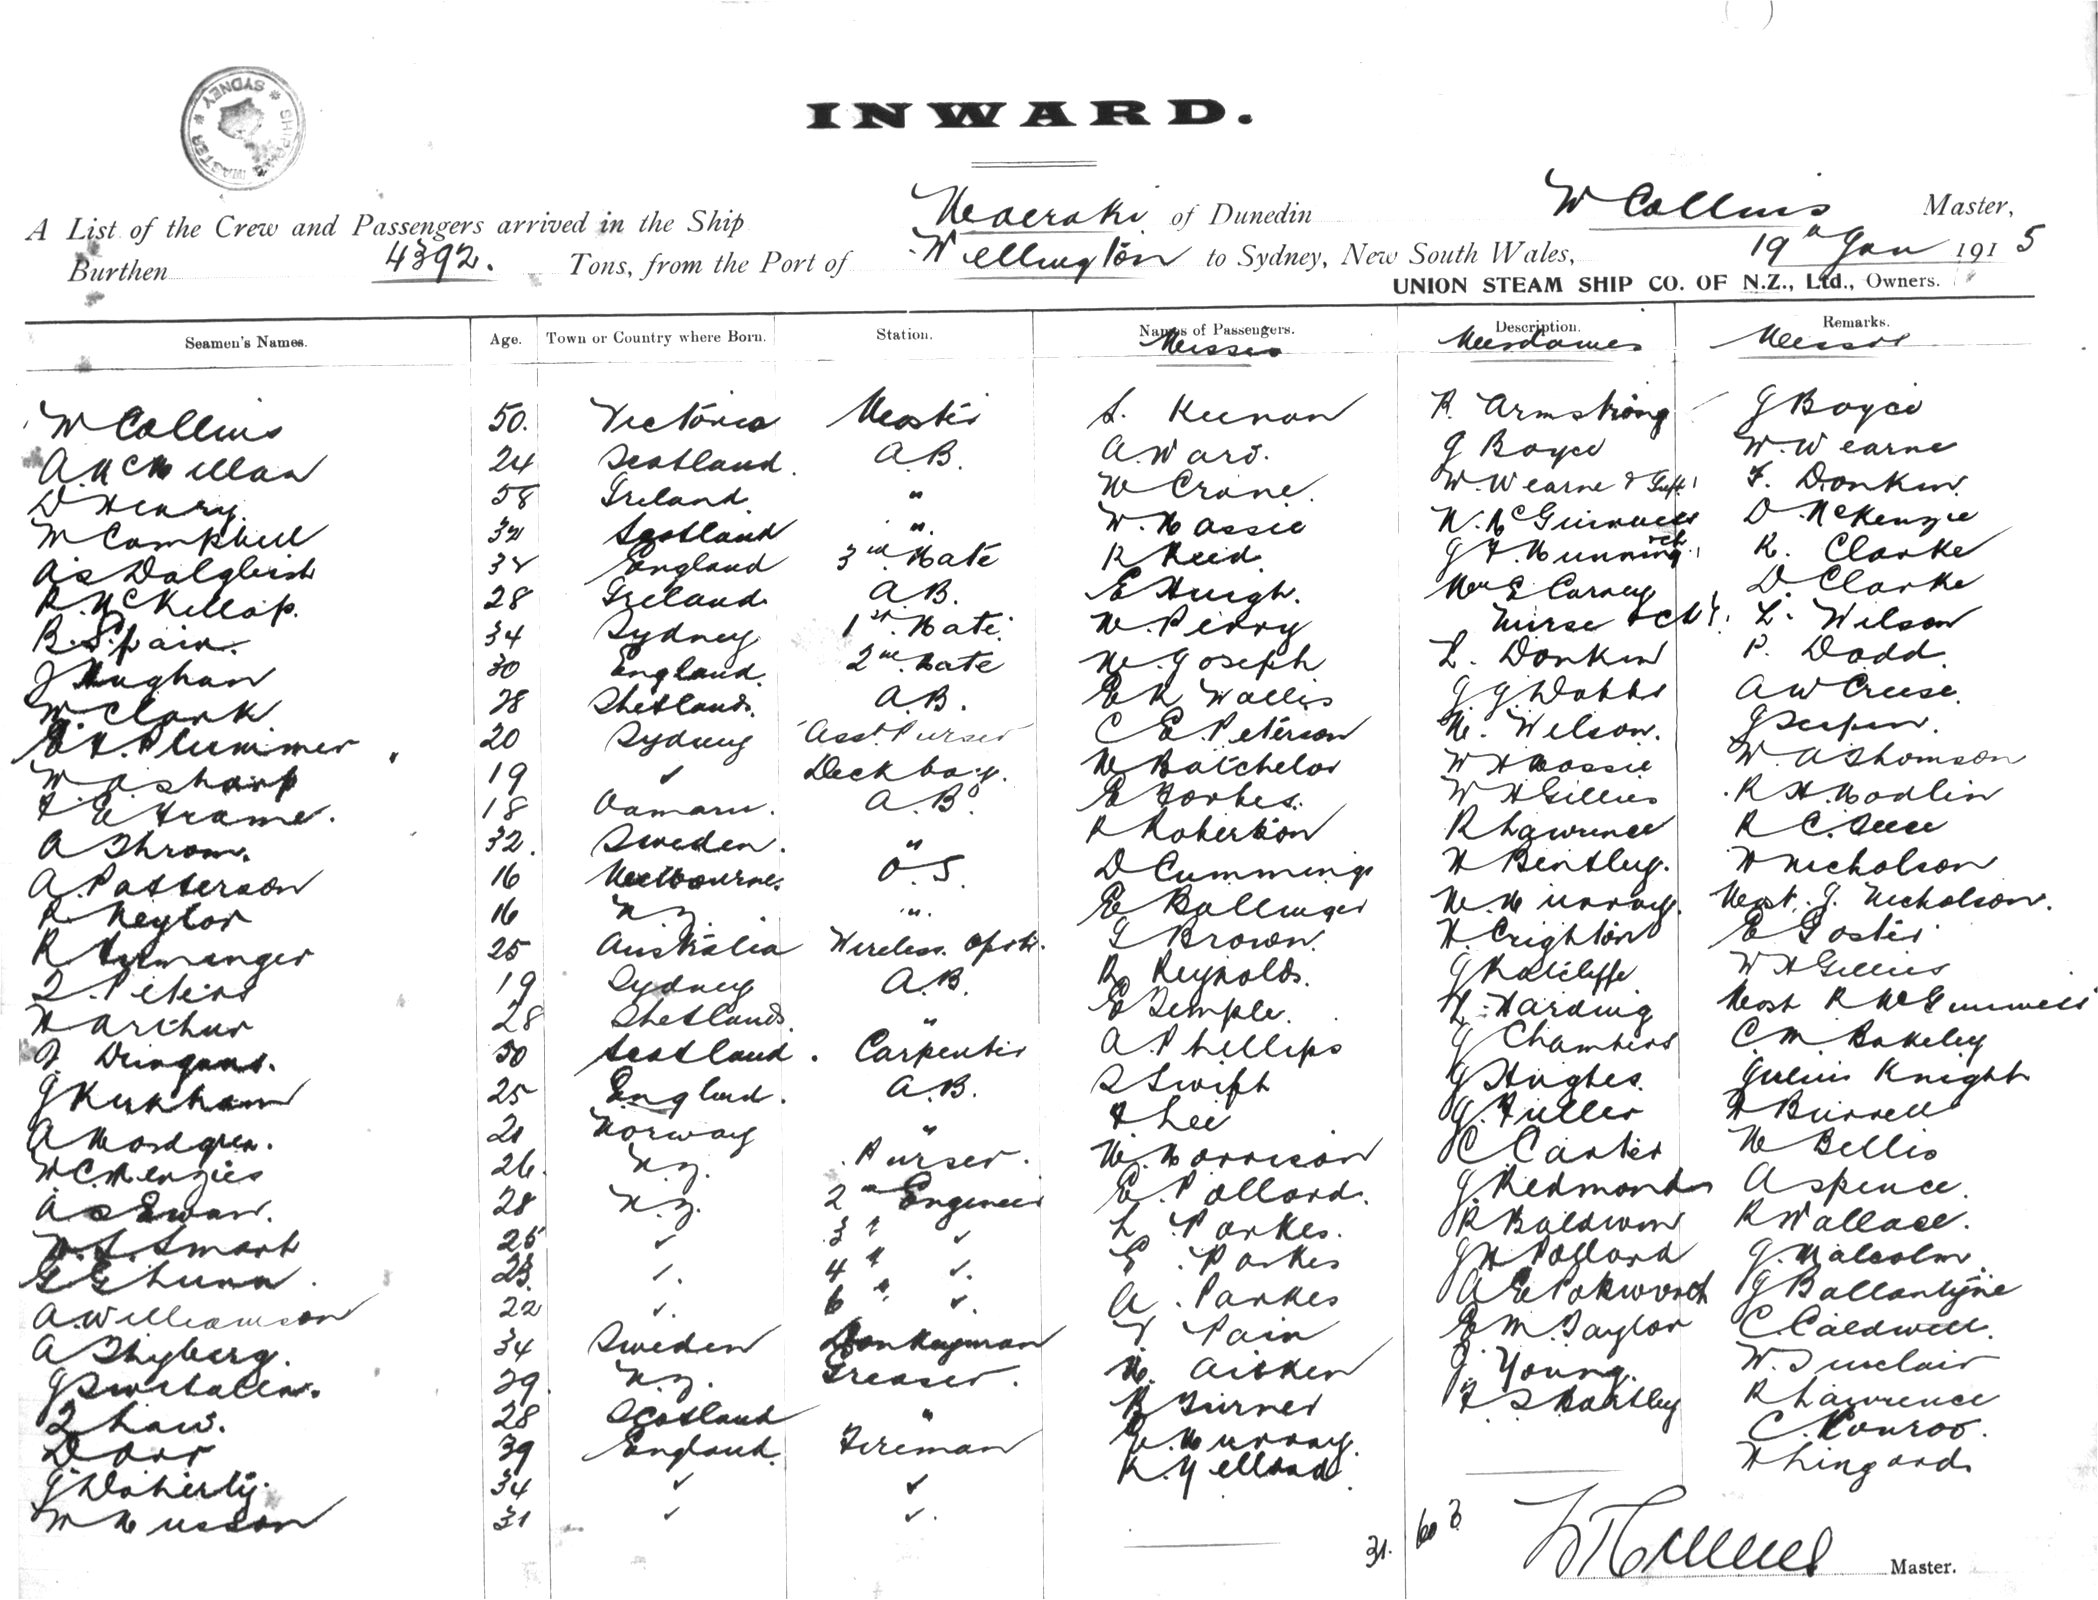 SHIPPING MASTER * SYDNEY *
INWARD.
A List of the Crew and Passengers arrived in the Ship Moeraki of Dunedin W Collins Master,
Burthen 4392. Tons, from the Port of Wellington to Sydney, New South Wales, 19th Jan 1915
UNION STEAM SHIP CO. OF N.Z., Ltd., Owners.
Seamen's Names. Age. Town or Country where Born. Station. Names of Passengers. Description. Remarks.
Misses Mesdames Messrs
W Collins 50. Victoria Master S. Keenan R. Armstrong G Boyce
A McMillan 24 Scotland. A.B. A Ward. G Boyce W. Wearne
D Henry. 58 Ireland. " M Crane. W. Wearne & F. Donkin.
M Campbell Scotland " W. Massie D. McKenzie
A S Dalglish England 3rd Mate R Reid. K. Clarke
R. McKillop. 28 Ireland A.B. E Hugh. Mrs E Carney D. Clarke
B. Spain. 34 Sydney 1st Mate M. Perry Nurse L. Wilson
J Vaughan 30 England. 2nd Mate M. Joseph L. Donkin P. Dodd.
W. Clark 28 Shetlands. A.B. E K Wallis G G Dobbs A W Creese.
E H. Plummer 20 Sydney Asst. Purser C E. Peterson M. Wilson.
W A Sharp 19 ✓ Deck boy. M Batchelor W H Massie W. A Thomson
F. E Frame. 18 Oamaru. A.B. E Forbes. W H Gillies R H. Modlin
A Throm. 32. Sweden. " R Robertson R Lawrence R C. Seese
A Patterson 16 Melbourne. O.S. D Cummings H Bentley. H Nicholson
R Neylor 16 N.Z. " E Ballinger M. Murray. Mast. J. Nicholson.
R 25 Australia Wireless Optr. G Brown. H. Crighton E Foster
Peters 19 Sydney A.B. R Reynolds. G Ratcliffe W H Gillies
H Arthur 28 Shetlands. " E Temple. L. Harding Mast R McGuinness
J. 50 Scotland. Carpenter A. Phillips G Chambers C. M. Bakeley
G Kirkham 25 England. A.B. S Swift G Hughes. Julius Knight
A Nordgren. 21 Norway " H Lee G. Fuller H Burrell
W C Menzies 26. N.Z. Purser. M. Morrison C Carter M Bellis
A S Ewan. 28 N.Z. 2nd Engineer E. Pollard. G. Redmond A Spence.
W. S. Smart 25 ✓ 3rd ✓ L. Parkes. R Baldwin R Wallace.
G G Lunn. 23. ✓. 4th ✓. E. Parkes G H Pollard G. Malcolm.
A. Williamson 22 ✓. 6th ✓. A. Parkes A E Pokworth G Ballantyne
A Thyberg. 34 Sweden Donkeyman Pain E M. Taylor C. Caldwell.
G 39. N.Z. Greaser. M. Aitken J. Young. W. Sinclair
Law. 28 Scotland " R Turner F S Hartley R Lawrence
D Orr 39 England. Fireman Murray. C. Conroo.
G Doherty. 34 ✓ ✓ K. Yelland. H Lingard.
W Musson 31 ✓ ✓.
31. 60
W Collins Master.